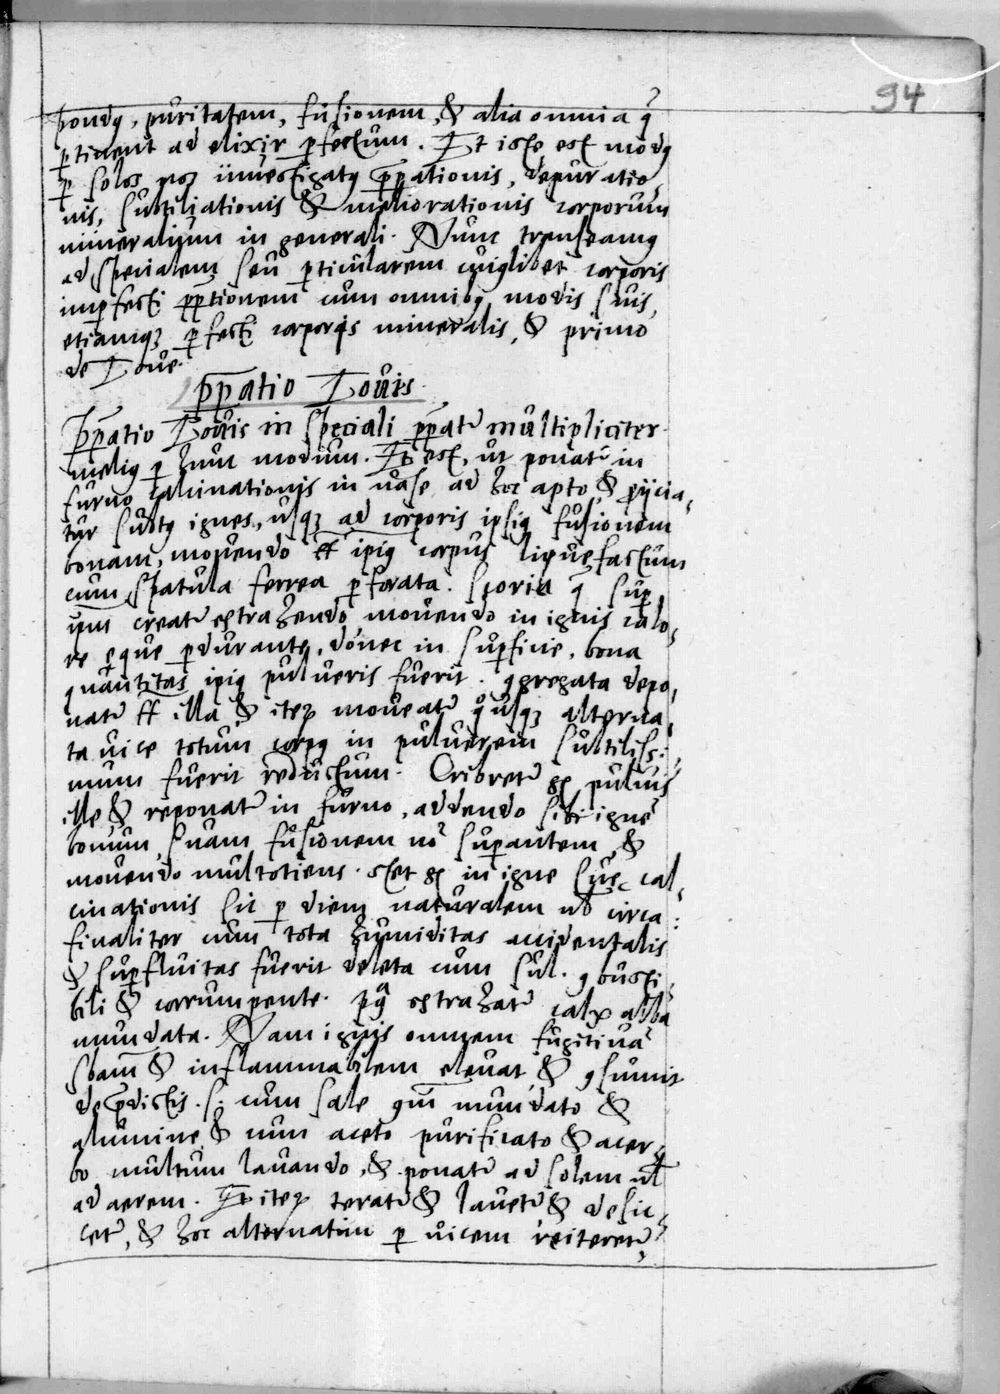 94
pondꝯ, puritatem, fusionem, & alia omnia q̄
ꝑtinent ad elixir ꝑfectum. Et iste est modꝯ
ꝑ solos nos inuestigatꝯ p̄pationis, depuratio-
nis, subtiliationis & meliorationis corporum
mineralium in generali. Nunc transeamꝯ
ad specialem seu ꝑticularem cuiꝯlibet corporis
imꝑfecti p̄ꝑtionem cum omnibꝯ modis suis,
etiamqꝫ ꝑfecti corporis mineralis, & primo
de Ioue.
p̄ꝑatio Iouis.
P̄ꝑatio Iouis in speciali p̄ꝑatr̃ multipliciter
meliꝯ ꝑ hunc modum. Et est, ut ponatr̃ in
furno calcinationis in uase ad hoc apto, & proijcia-
tur subtꝯ ignes, usqꝫ ad corporis ipsiꝯ fusionem
bonam, mouendo ipiꝯ corpus liquefactum
cum spatula ferrea ꝑforata. Scoria q̄ suꝑ
ipm creatr̃ extrahendo mouendo in ignis calo-
re eque ꝑdurante, donec in suꝑficie, bona
quantitas ipiꝯ pulueris fuerit. ꝯgregata depo-
natr̃ illa & iteꝝ moueatr̃ quousqꝫ alterna-
ta uice totum corpꝯ in puluerem subtilissi-
mum fuerit reductum. Cribretr̃ puluis
ille & reponatr̃ in furno, addendo sibi ignē
bonum, suam fusionem nō suꝑantem, &
mouendo multotiens. stet in igne sue cal-
cinationis sic ꝑ diem naturalem ut circa
finaliter cum tota humiditas accidentalis
& suꝑfluitas fuerit deleta cum sul. ꝯbusti-
bili & corrumpente. pꝯq̃ extrahatr̃ calx alba
mundata. Nam ignis omnem fugitiuā
sbam & inflammabilem eleuat & ꝯsumit
de p̄dictis. s: cum sale ꝯmuni mundato &
alumine & cum aceto purificato & acer-
bo multum lauando, & ponatr̃ ad solem ul
ad aerem. Et iteꝝ teratr̃ & lauetr̃ & desic-
cetr̃, & hoc alternatim ꝑ uicem reiteretr̃,